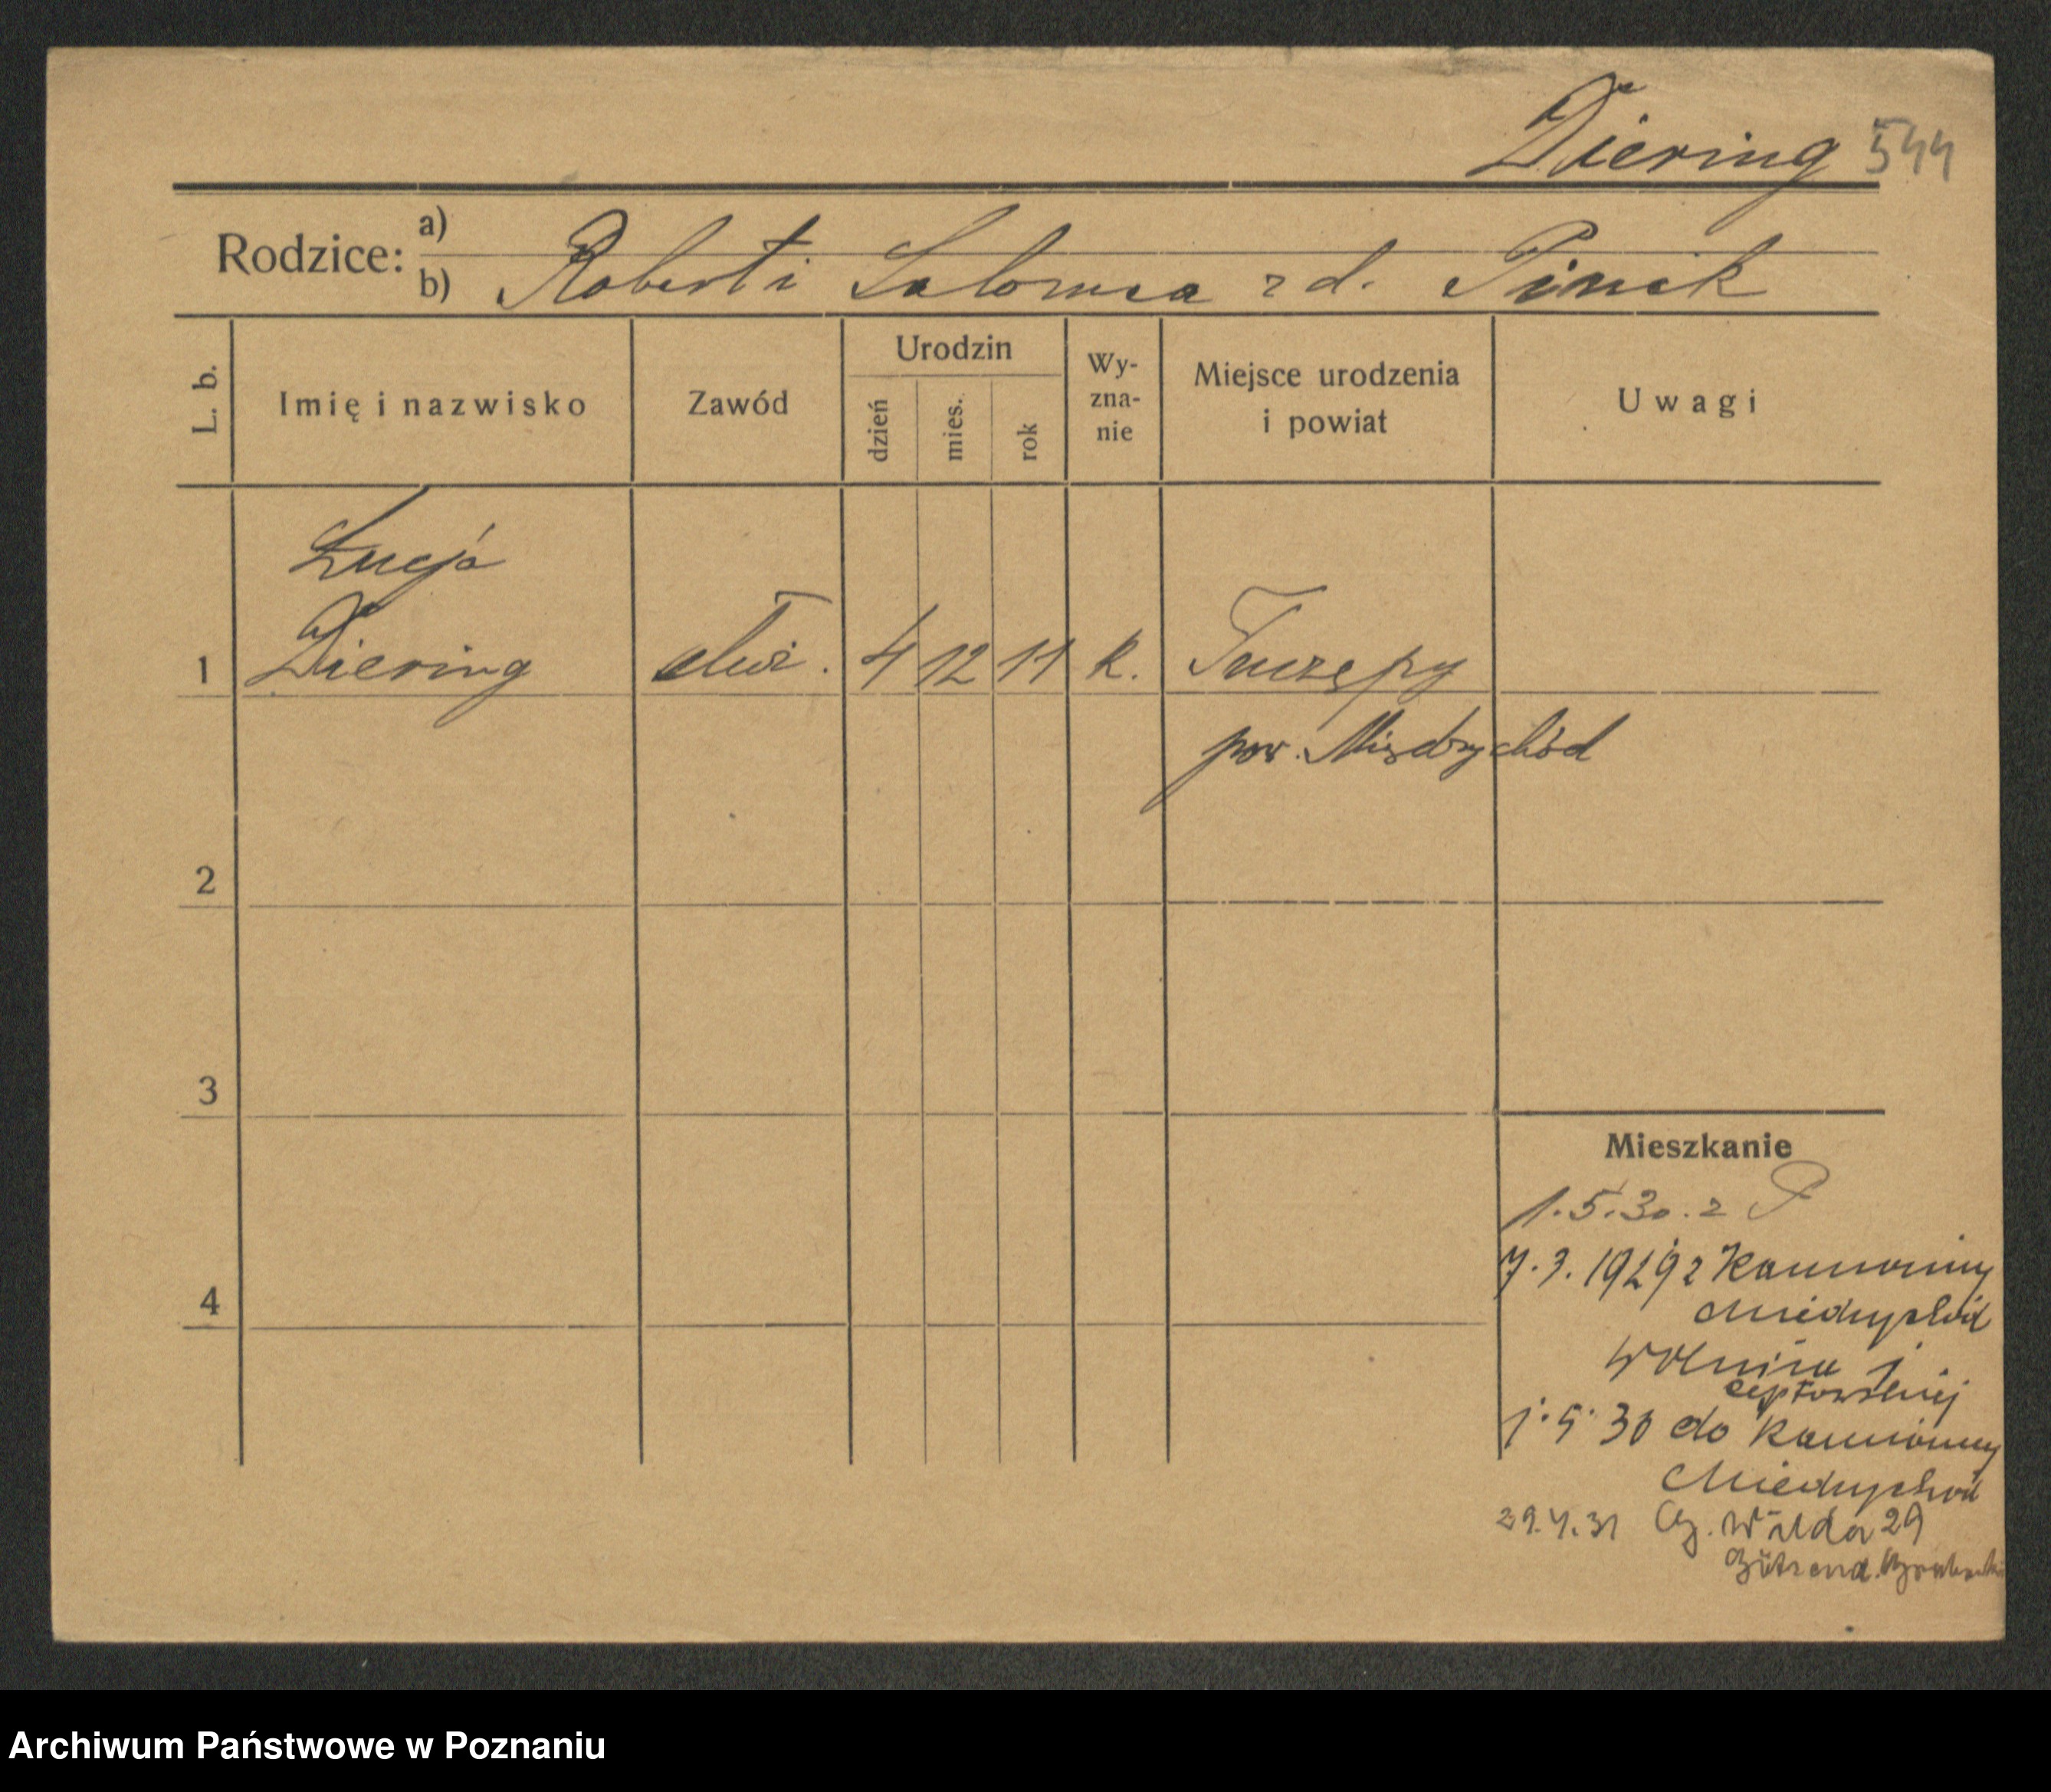 Diering 544
Rodzice: a)
b) Robert i Salomea z d. Pinek
L. b.
Imię i nazwisko
Zawód
Urodzin
dzień
mies.
rok
Wy-
zna-
nie
Miejsce urodzenia
i powiat
Uwagi
Łucja
1 Diering służ. 4 12 11 k. Tuczępy
pow. Międzychód
2
3
Mieszkanie
1.5.30. z P
7.3.1929 z Kamionny
Miedzychód
4
1.5.30 do Kamionny
Miedzychód
29.4.31 G. Wilda 29
Archiwum Państwowe w Poznaniu